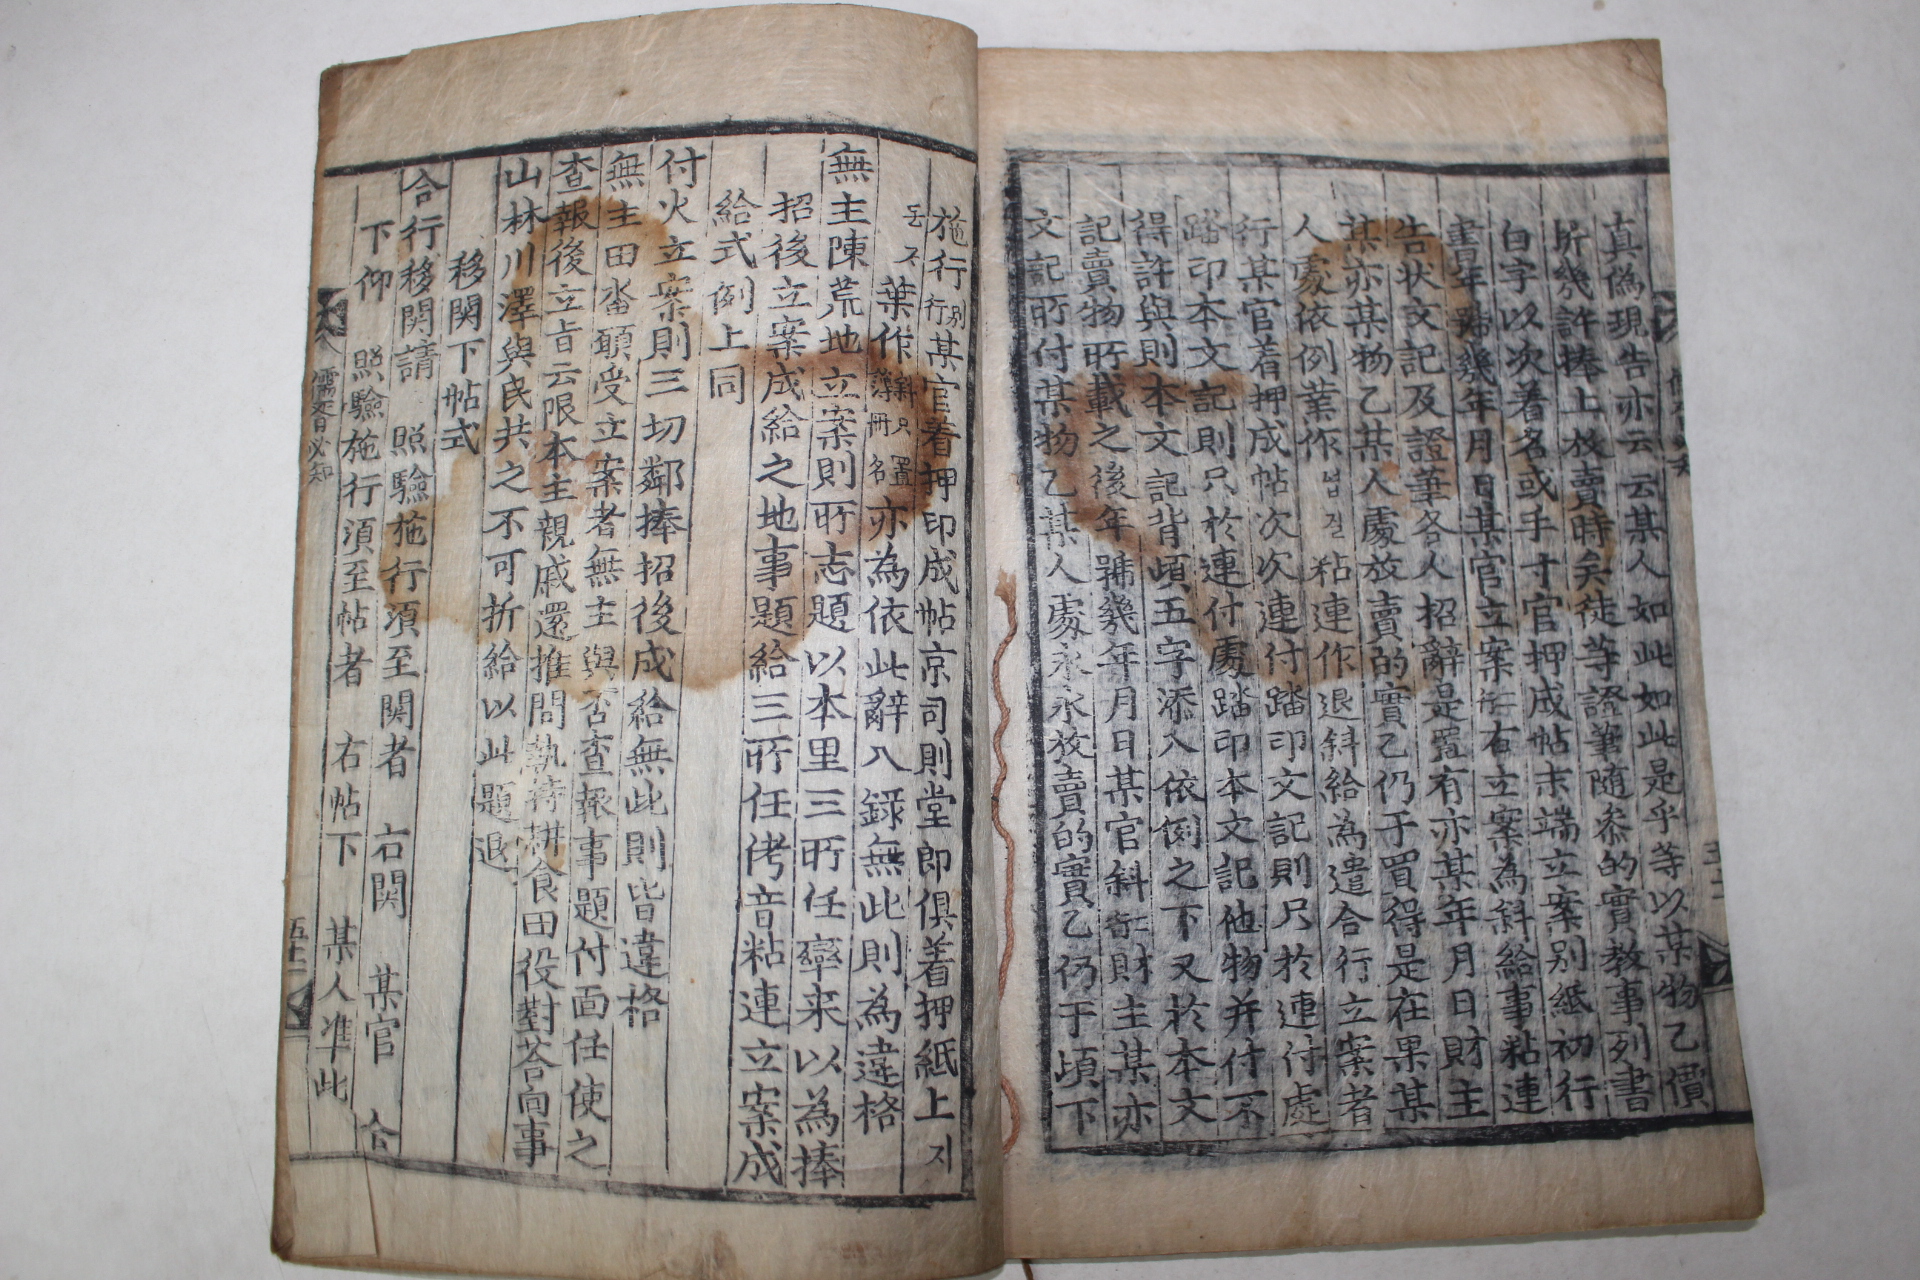 真偽現告亦云云某人如此如此是乎等以某物乙價
折幾許捧上放賣時矣徒等證筆隨叅的實敎事列書
白字以次着名或手寸官押成帖末端立案别紙初行
書年號幾年月日某官立案右立案爲斜給事粘連
告狀文記及證筆各人招辭是置有亦某年月日財主
某亦某物乙某人處放賣的實乙仍于買得是在果某
人處依例葉作녑질粘連作退斜給爲遣合行立案者
行某官着押成帖次次連付踏印文記則只於連付處
踏印本文記則只於連付處踏印本文記他物并付不
得許與則本文記背頉五字添入依例之下又於本文
記賣物所載之後年號幾年月日某官斜財主某亦
文記所付某物乙某人處永永放賣的實乙仍于頉下
施行别行某官着押印成帖京司則堂郎俱着押紙上지
葉作斜只置簿冊名亦爲依此辭入錄無此則爲違格
無主陳荒地立案則所志題以本里三所任率来以爲捧
招後立案成給之地事題給三所任侤音粘連立案成
給式例上同
付火立案則三切鄰捧招後成給無此則皆違格
無主田畓願受立案者無主與否查報事題付面任使之
查報後立旨云限本主親戚還推間執持耕食田役對答向事
山林川澤與民共之不可折給以此題退
移関下帖式
合行移関請 照驗施行湏至関者 右関 某官 合
下仰 照驗施行湏至帖者 右帖下 某人准此
儒胥必知
五十二